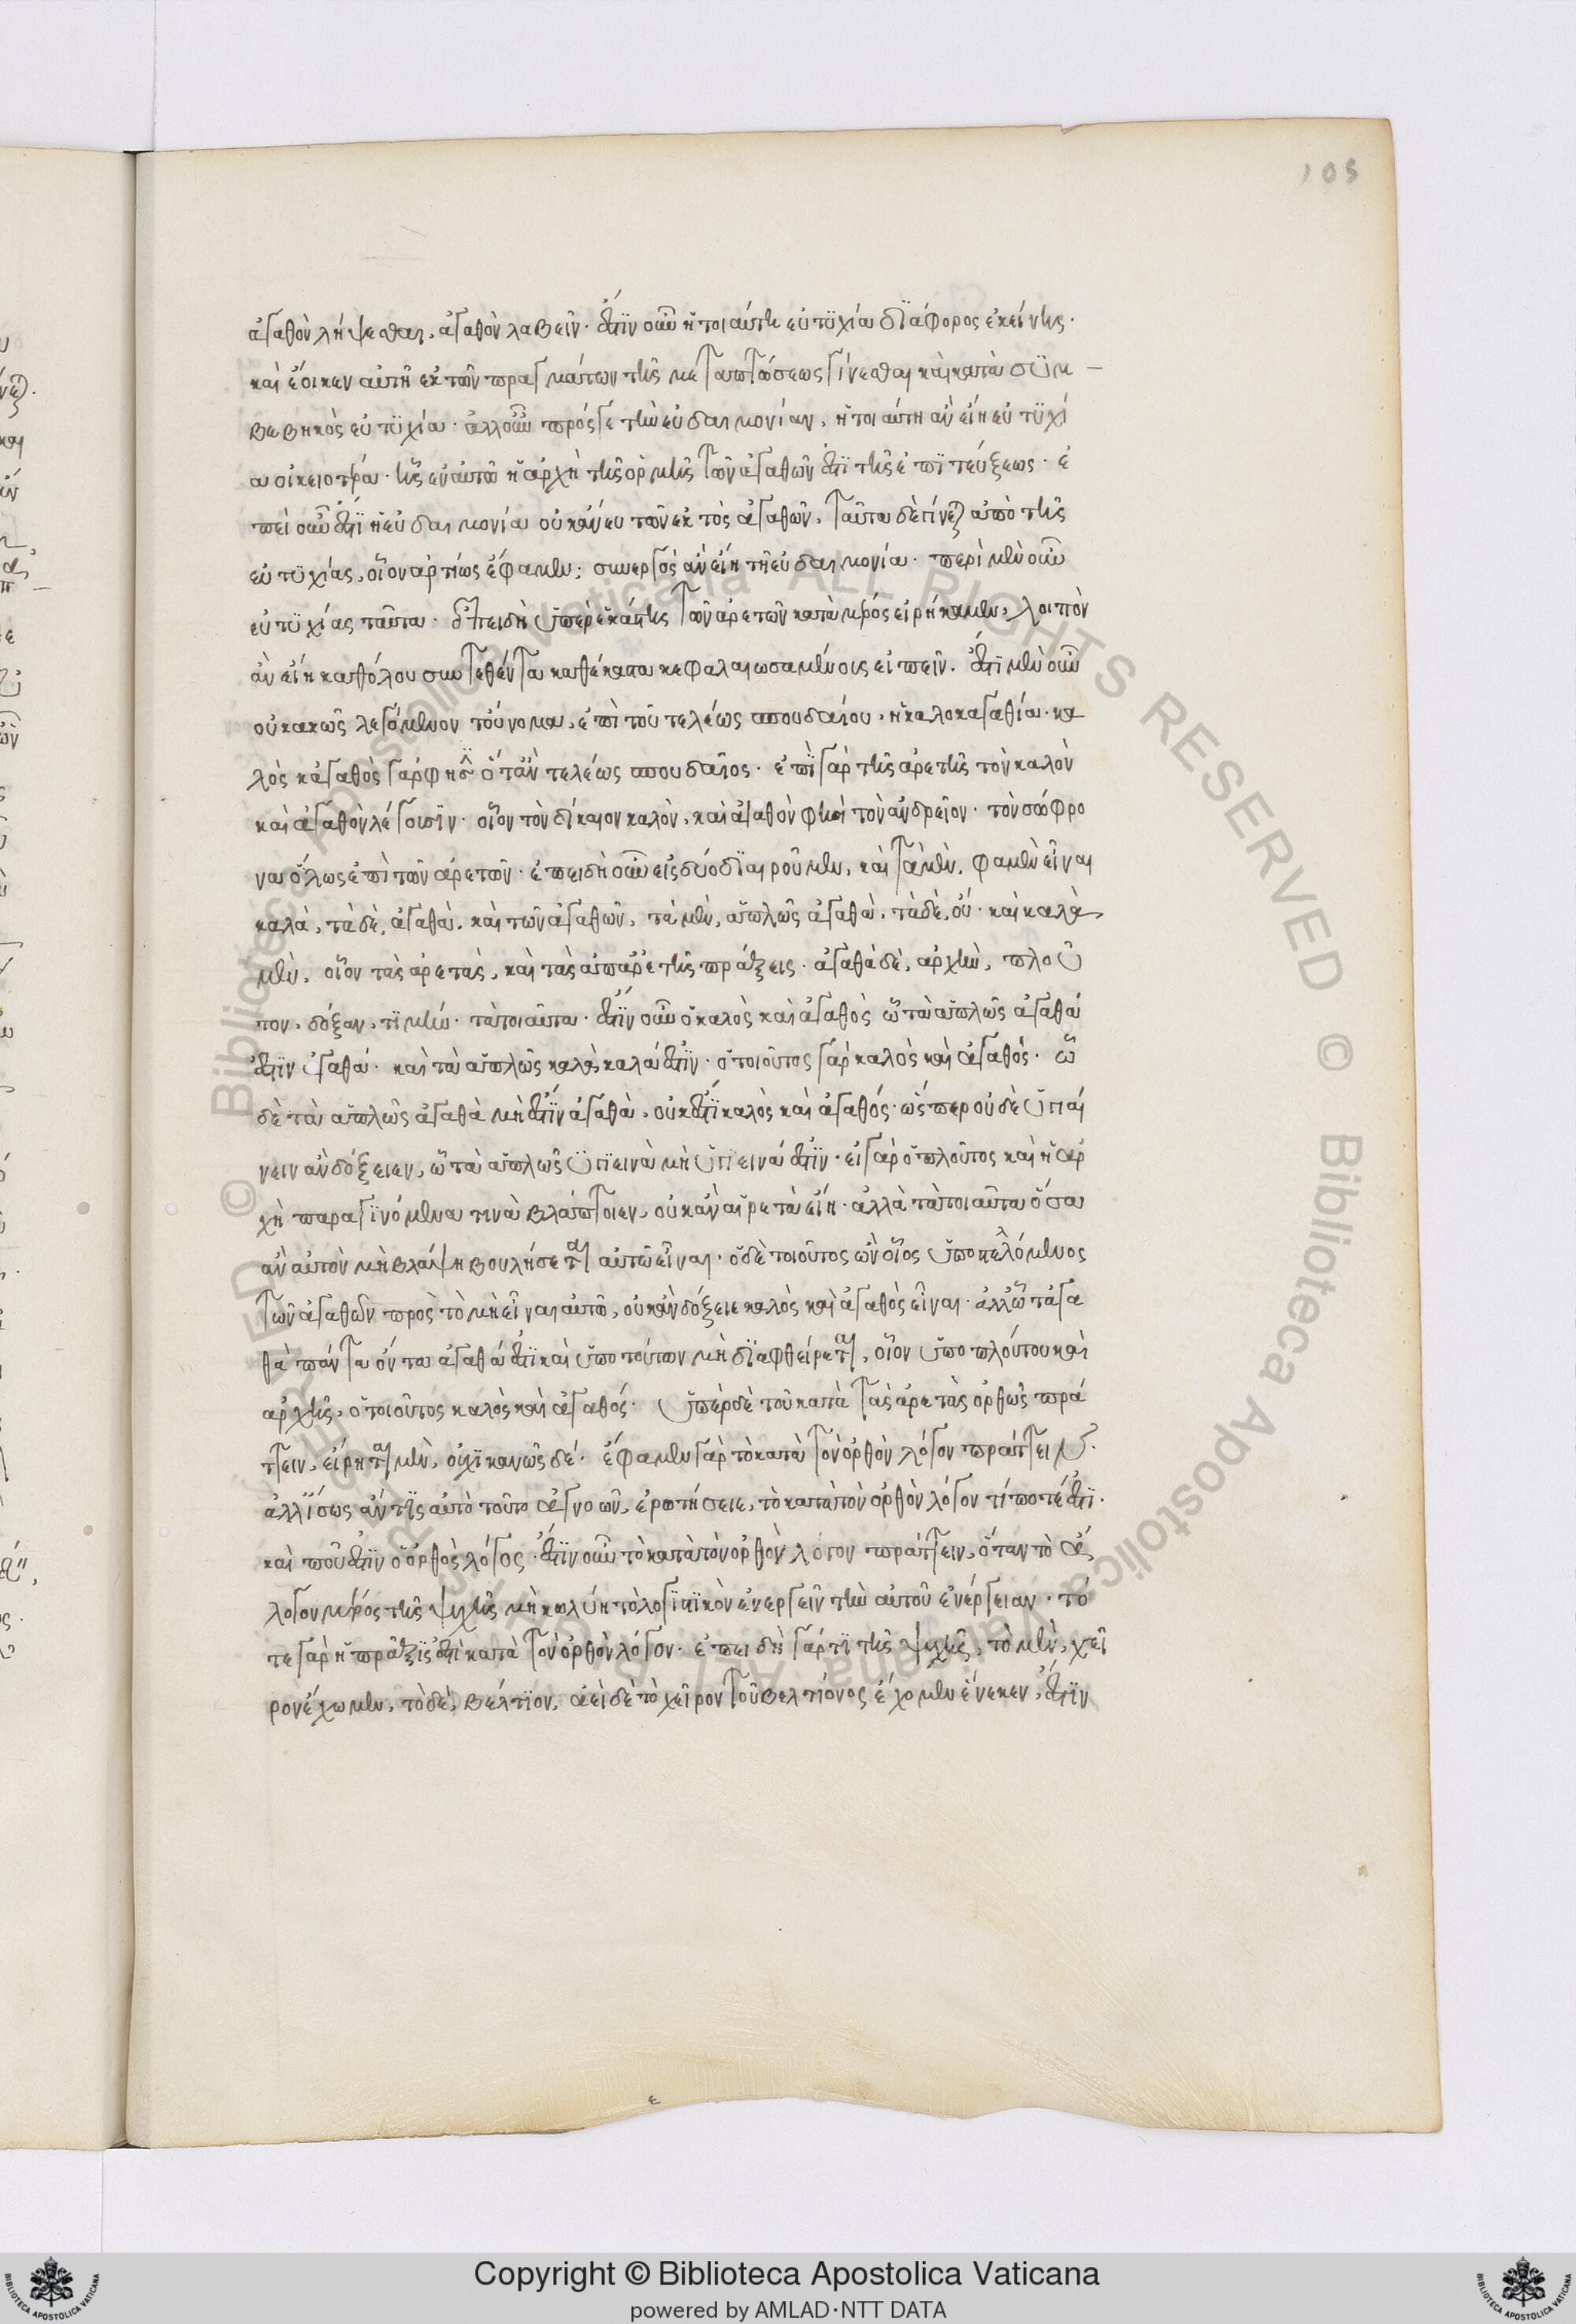 105
ἀγαθὸν λήψεσθαι, ἀγαθὸν λαβεῖν. ἔστιν οὖν ἡ τοιαύτη εὐτυχία διάφορος ἐκείνης.
καὶ ἔοικεν αὐτὴ ἐκ τῶν πραγμάτων τῆς μεταπτώσεως γίνεσθαι καὶ κατὰ συμ
βεβηκὸς εὐτυχία. ἀλλ' οὖν πρός γε τὴν εὐδαιμονίαν, ἡ τοιαύτη ἂν εἴη εὐτυχί
α οἰκειοτέρα. ἧς ἐν αὐτῶ ἡ ἀρχὴ τῆς ὁρμῆς τῶν ἀγαθῶν ἐστὶ τῆς ἐπιτεύξεως. ἐ
πεὶ οὖν ἐστὶ ἡ εὐδαιμονία οὐκ ἄνευ τῶν ἐκτὸς ἀγαθῶν, ταῦτα δὲ γίνεται ἀπὸ τῆς
εὐτυχίας, οἷον ἀρτίως ἔφαμεν· συνεργὸς ἂν εἴη τῆ εὐδαιμονία. περὶ μὲν οὖν
εὐτυχίας ταῦτα. ἐπειδὴ ὑπὲρ ἑκάστης τῶν ἀρετῶν κατὰ μέρος εἰρήκαμεν, λοιπὸν
ἂν εἴη καθόλου συντεθέντα καθέκαστα κεφαλαιωσαμένοις εἰπεῖν. ἔστι μὲν οὖν
οὐ κακῶς λεγόμενον τοὔνομα, ἐπὶ τοῦ τελέως σπουδαίου, ἡ καλοκαγαθία. κα
λὸς κἀγαθὸς γάρ φησιν ὅταν τελέως σπουδαῖος. ἐπὶ γὰρ τῆς ἀρετῆς τὸν καλὸν
καὶ ἀγαθὸν λέγουσιν. οἷον τὸν δίκαιον καλὸν, καὶ ἀγαθὸν φησὶ τὸν ἀνδρεῖον. τὸν σώφρο
να ὅλως ἐπὶ τῶν ἀρετῶν. ἐπειδὴ οὖν εἰς δύο διαιροῦμεν, καὶ τὰ μὲν, φαμὲν εἶναι
καλὰ, τὰ δὲ, ἀγαθὰ. καὶ τῶν ἀγαθῶν, τὰ μὲν, ἁπλῶς ἀγαθὰ, τὰ δὲ, οὔ. καὶ καλὰ
μὲν, οἷον τὰς ἀρετὰς, καὶ τὰς ἀπ' ἀρετῆς πράξεις. ἀγαθὰ δὲ, ἀρχὴν, πλοῦ
τον, δόξαν, τιμήν. τὰ τοιαῦτα. ἔστιν οὖν ὁ καλὸς καὶ ἀγαθὸς ὧ τὰ ἁπλῶς ἀγαθά
ἐστιν ἀγαθά. καὶ τὰ ἁπλῶς καλὰ, καλά ἐστιν. ὁ τοιοῦτος γὰρ καλὸς καὶ ἀγαθός. ὧ
δὲ τὰ ἁπλῶς ἀγαθὰ μὴ ἔστιν ἀγαθὰ, οὐκ ἔστι καλὸς καὶ ἀγαθός. ὥσπερ οὐδὲ ὑγιαί
νειν ἂν δόξειεν, ὧ τὰ ἁπλῶς ὑγιεινὰ μὴ ὑγιεινά ἐστιν. εἰ γὰρ ὁ πλοῦτος καὶ ἡ ἀρ
χὴ παραγινόμενα τινὰ βλάπτοιεν, οὐκ ἂν αἱρετὰ εἴη. ἀλλὰ τὰ τοιαῦτα ὅσα
ἂν αὐτὸν μὴ βλάψη βουλήσεται αὐτῶ εἶναι. ὁ δὲ τοιοῦτος ὢν οἷος ὑποστελλόμενος
τῶν ἀγαθῶν πρὸς τὸ μὴ εἶναι αὐτῶ, οὐκ ἂν δόξειε καλὸς καὶ ἀγαθὸς εἶναι. ἀλλ' ὧ τἀγα
θὰ πάντα ὄντα ἀγαθά ἐστι καὶ ὑπὸ τούτων μὴ διαφθείρεται, οἷον ὑπὸ πλούτου καὶ
ἀρχῆς, ὁ τοιοῦτος καλὸς καὶ ἀγαθός. ὑπὲρ δὲ τοῦ κατὰ τὰς ἀρετὰς ὀρθῶς πρά
ττειν, εἴρηται μὲν, οὐχ ἱκανῶς δέ. ἔφαμεν γὰρ τὸ κατὰ τὸν ὀρθὸν λόγον πράττειν.
ἀλλ' ἴσως ἄν τις αὐτὸ τοῦτο ἀγνοῶν, ἐρωτήσειε, τὸ κατὰ τὸν ὀρθὸν λόγον τί ποτέ ἐστι.
καὶ ποῦ ἐστιν ὁ ὀρθὸς λόγος. ἔστιν οὖν τὸ κατὰ τὸν ὀρθὸν λόγον πράττειν, ὅταν τὸ ἄ
λογον μέρος τῆς ψυχῆς μὴ κωλύη τὸ λογιστικὸν ἐνεργεῖν τὴν αὐτοῦ ἐνέργειαν. τό
τε γὰρ ἡ πρᾶξις ἐστὶ κατὰ τὸν ὀρθὸν λόγον. ἐπειδὴ γάρ τι τῆς ψυχῆς, τὸ μὲν, χεῖ
ρον ἔχωμεν, τὸ δὲ, βέλτιον, ἀεὶ δὲ τὸ χεῖρον τοῦ βελτίονος ἔχομεν ἕνεκεν, ἔστιν
ε
© Biblioteca Apostolica Vaticana ALL RIGHTS RESERVED
Copyright © Biblioteca Apostolica Vaticana
powered by AMLAD·NTT DATA